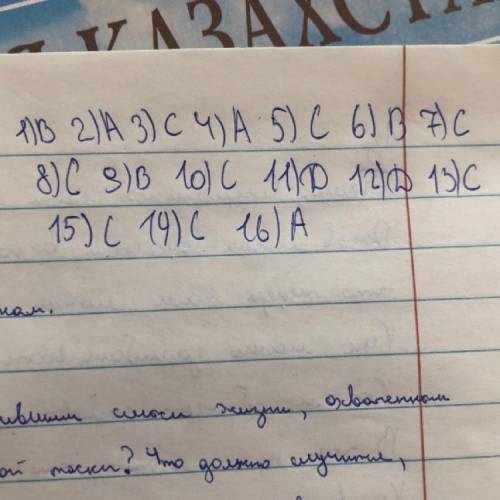 КАЗАХСТА
1) B 2) A 3) C 4) A 5) C 6) B 7) C
8) C 9) B 10) C 11) D 12) D 13) C
15) C 14) C 16) A
нам.
ившим смысл жизни, охваченном
ой тоски? Что должно случится,